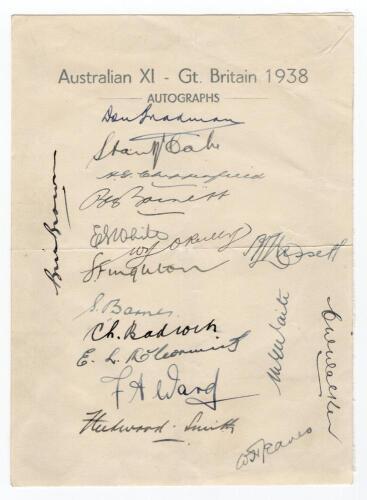 Australian XI - Gt. Britain 1938
AUTOGRAPHS
Don Bradman
Stan McCabe
A.G. Chipperfield
B A Barnett
E S White
W J O'Reilly
A L Hassett
J. Fingleton
Bill Brown
S. Barnes
C L. Badcock
E. L. McCormick
M G Waite
C W Walker
F A Ward
Fleetwood-Smith
W H Jeanes